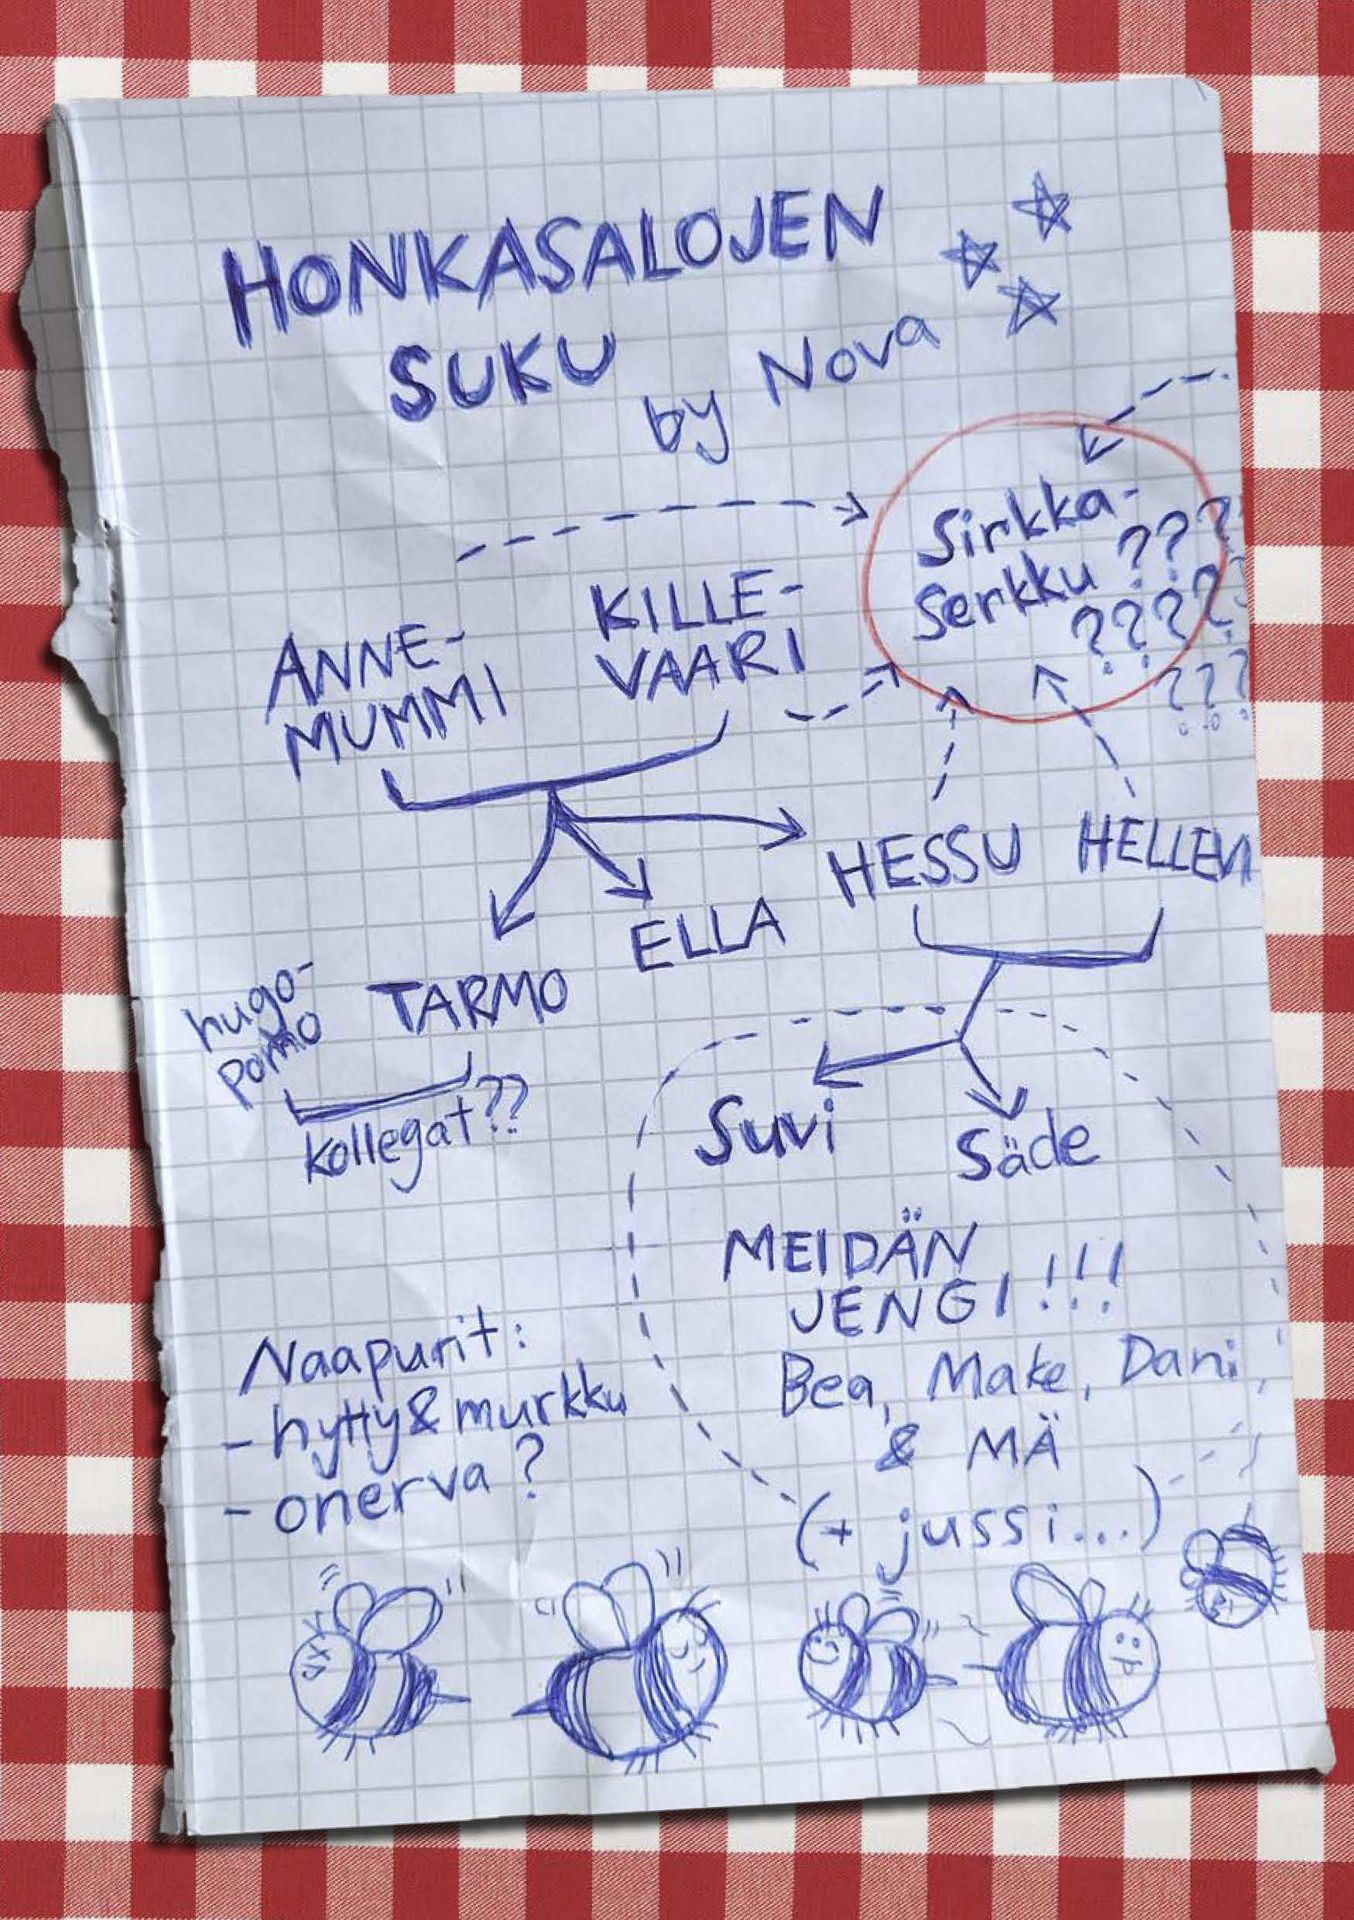 HONKASALOJEN
SUKU
by Nova
Sirkka-
Serkku ???
????
???
ANNE-
MUMMI
KILLE-
VAARI
HESSU HELLEN
ELLA
TARMO
hugo-
pomo
kollegat??
Suvi
Säde
MEIDÄN
JENGI!!!
Bea, Make, Dani
& MÄ
(+ jussi...)
Naapurit:
- hytty & murkku
- onerva?